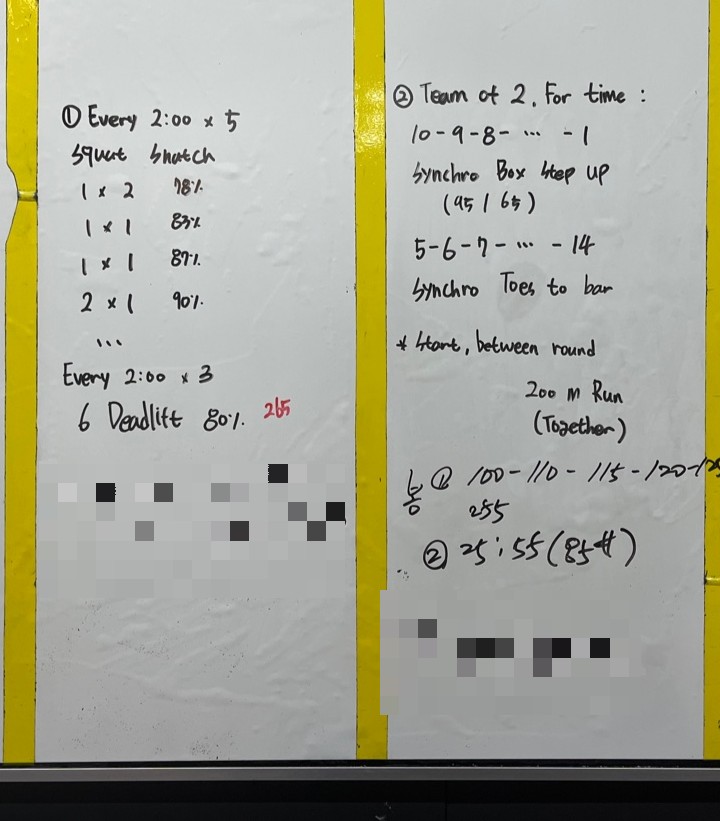 ① Every 2:00 x 5
Squat Snatch
1 x 2 78%
1 x 1 83%
1 x 1 87%
2 x 1 90%
...
Every 2:00 x 3
6 Deadlift 80% 265
② Team of 2, For time :
10-9-8- ... -1
Synchro Box Step up
(95 / 65)
5-6-7- ... -14
Synchro Toes to bar
* Start, between round
200 m Run
(Together)
봉 ① 100-110-115-120-125
255
② 25:55 (85#)